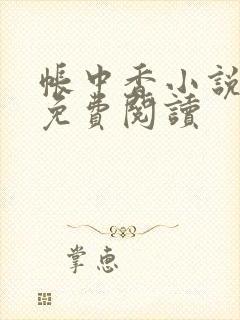 帳中香小說
免費閱讀
掌惠